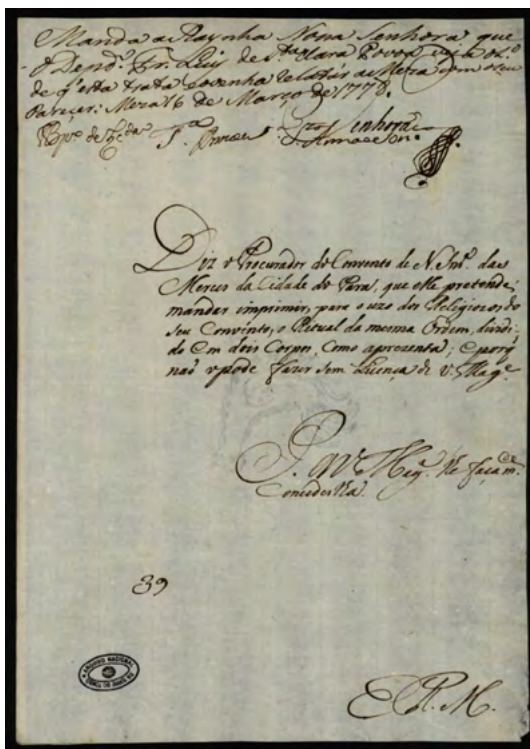 Manda a Raynha Nossa Senhora que
o Depdo. Fr. Luis de Sta. Clara Povoa veja o
de q' esta trata e o venha relatar a Meza com o seu
Parecer: Meza 16 de Março de 1778.
Senhora
Diz o Procurador do Convento de N. Snra. das
Merces da Cidade do Pará, que elle pretende,
mandar imprimir, para o uzo dos Religiozos do
seu Convento, o Ritual da mesma Ordem, dividi-
do em dois Corpos, como aprezenta; e porq'
naõ o pode fazer sem Licença de V. Mage.
P. a V. Mag. lhe faça m.ce
conceder lha.
39
ARQUIVO NACIONAL
TORRE DO TOMBO
E. R. M.